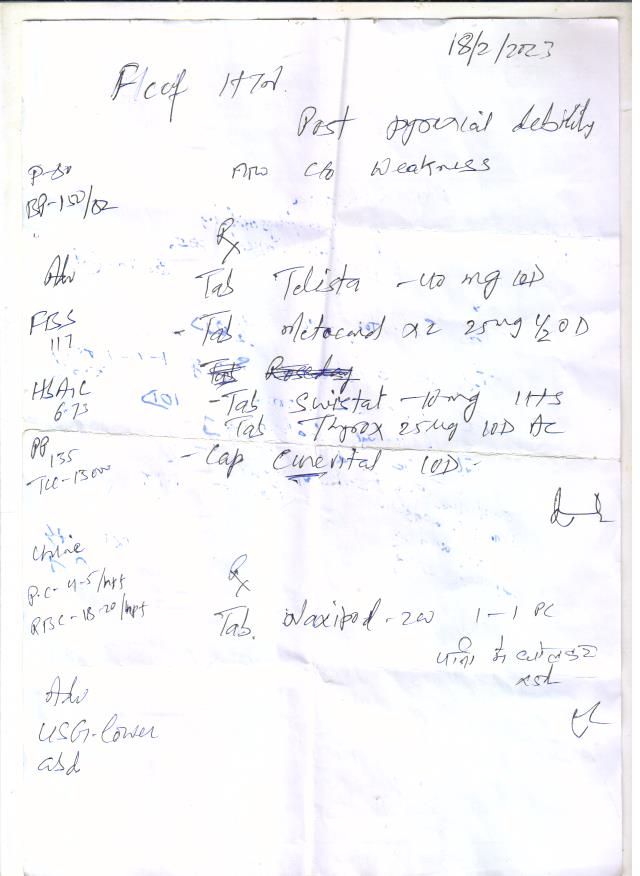 18/2/2023
F/c of HTN.
Post pyrexial debility
P-80 c/o Weakness
BP-150/82
Rx
Adv Tab Telista -40 mg 1OD
FBS - Tab Metocard XL 25mg ½ OD
117
HbA1C -Tab Swistat -10mg 1HS
6.73 Tab Thyrox 25µg 1OD AC
PP 135 - Cap 1OD
TLC-13000
Urine
Rx
P.C-4-5/hpf
RBC-18-20/hpf Tab. -200 1-1 PC
पानी में
xsd
Adv
USG-lower
abd